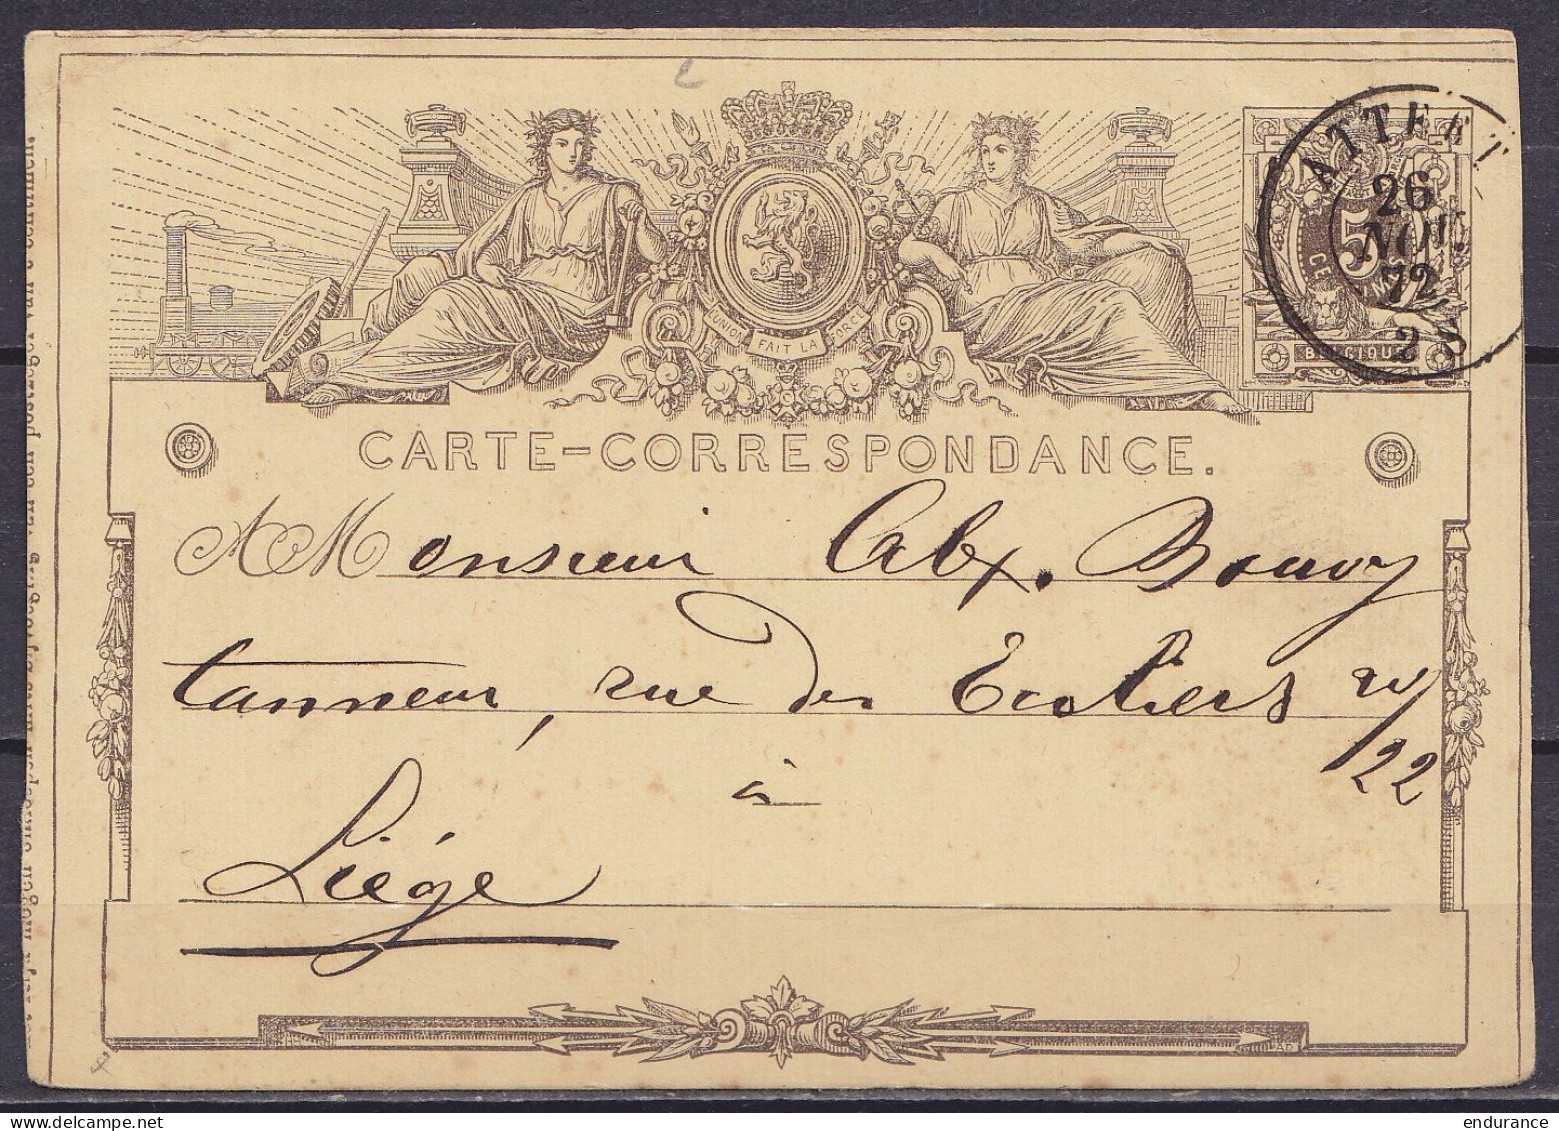 ATTERT
26
NOV.
72
2 S
5
BELGIQUE
L'UNION FAIT LA FORCE
CARTE-CORRESPONDANCE.
A M onsieur Alex. Bouvy
tanneur, rue des Ecoliers n
/22
à
Liége
endurance